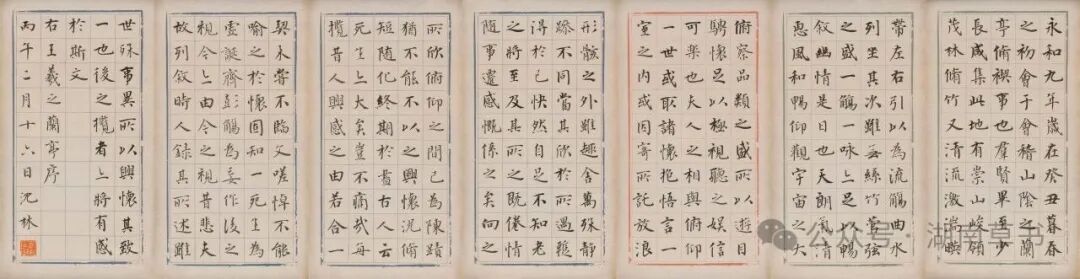 永和九年歲在癸丑暮春
之初會于會稽山陰之蘭
亭脩禊事也羣賢畢至少
長咸集此地有崇山峻領
茂林脩竹又清流激湍暎
帶左右引以為流觴曲水
列坐其次雖無絲竹管弦
之盛一觴一詠亦足以暢
叙幽情是日也天朗氣清
惠風和暢仰觀宇宙之大
俯察品類之盛所以遊目
騁懷足以極視聽之娛信
可樂也夫人之相與俯仰
一世或取諸懷抱悟言一
室之內或因寄所託放浪
形骸之外雖趣舍萬殊靜
躁不同當其欣於所遇蹔
得於己快然自足不知老
之將至及其所之既倦情
隨事遷感慨係之矣向之
所欣俯仰之間已為陳跡
猶不能不以之興懷況脩
短隨化終期於盡古人云
死生亦大矣豈不痛哉每
攬昔人興感之由若合一
契未嘗不臨文嗟悼不能
喻之於懷固知一死生為
虛誕齊彭殤為妄作後之
視今亦由今之視昔悲夫
故列叙時人錄其所述雖
世殊事異所以興懷其致
一也後之攬者亦將有感
於斯文
右王羲之蘭亭序
丙午二月十六日沈林
公众号·湖南草书